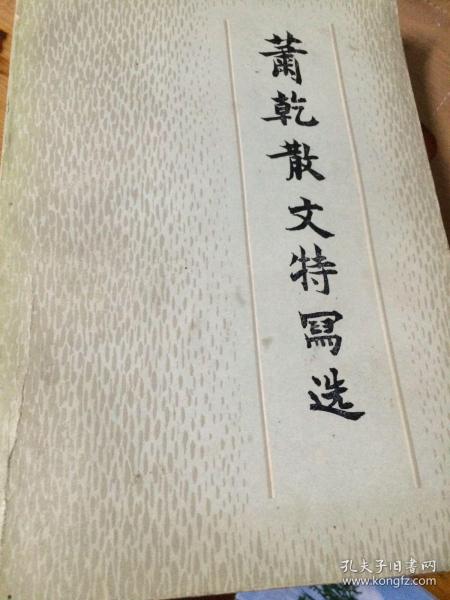 蕭乾散文特寫选
孔夫子旧书网
www.kongfz.com